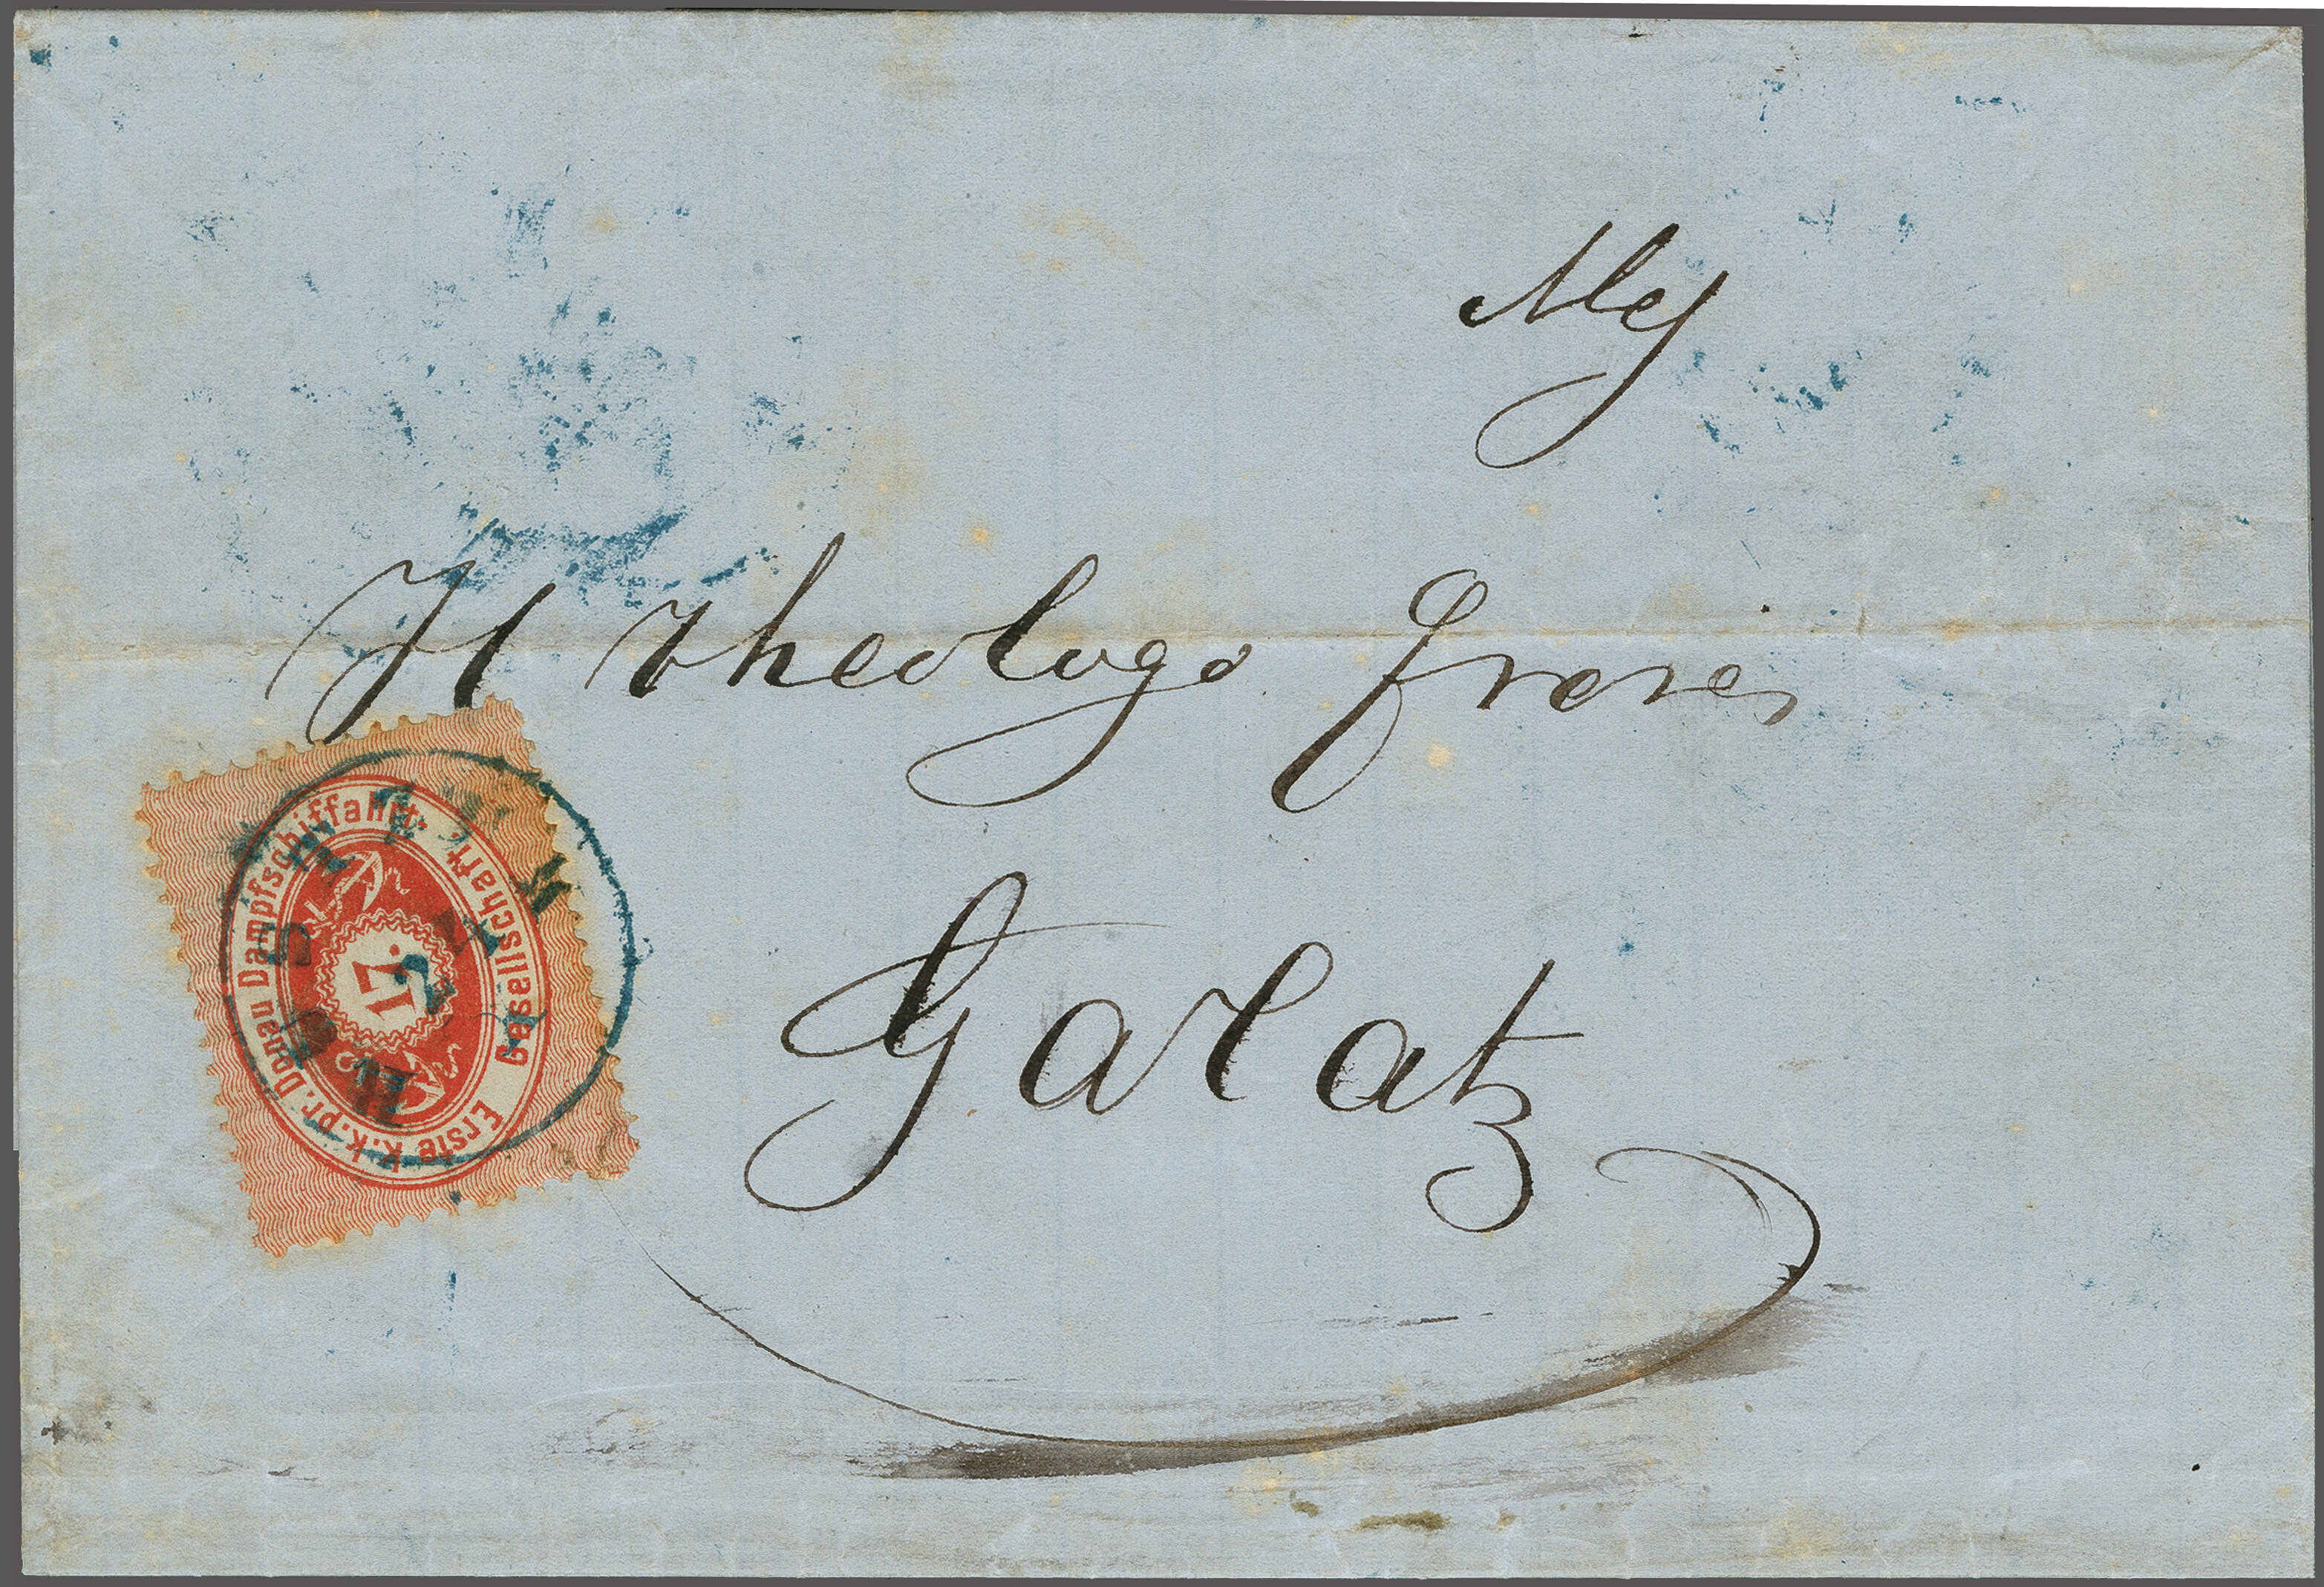 Mrs
H theologo freres
Galatz
Erste k.k.pr. Donau Dampfschiffahrt-Gesellschaft
17.